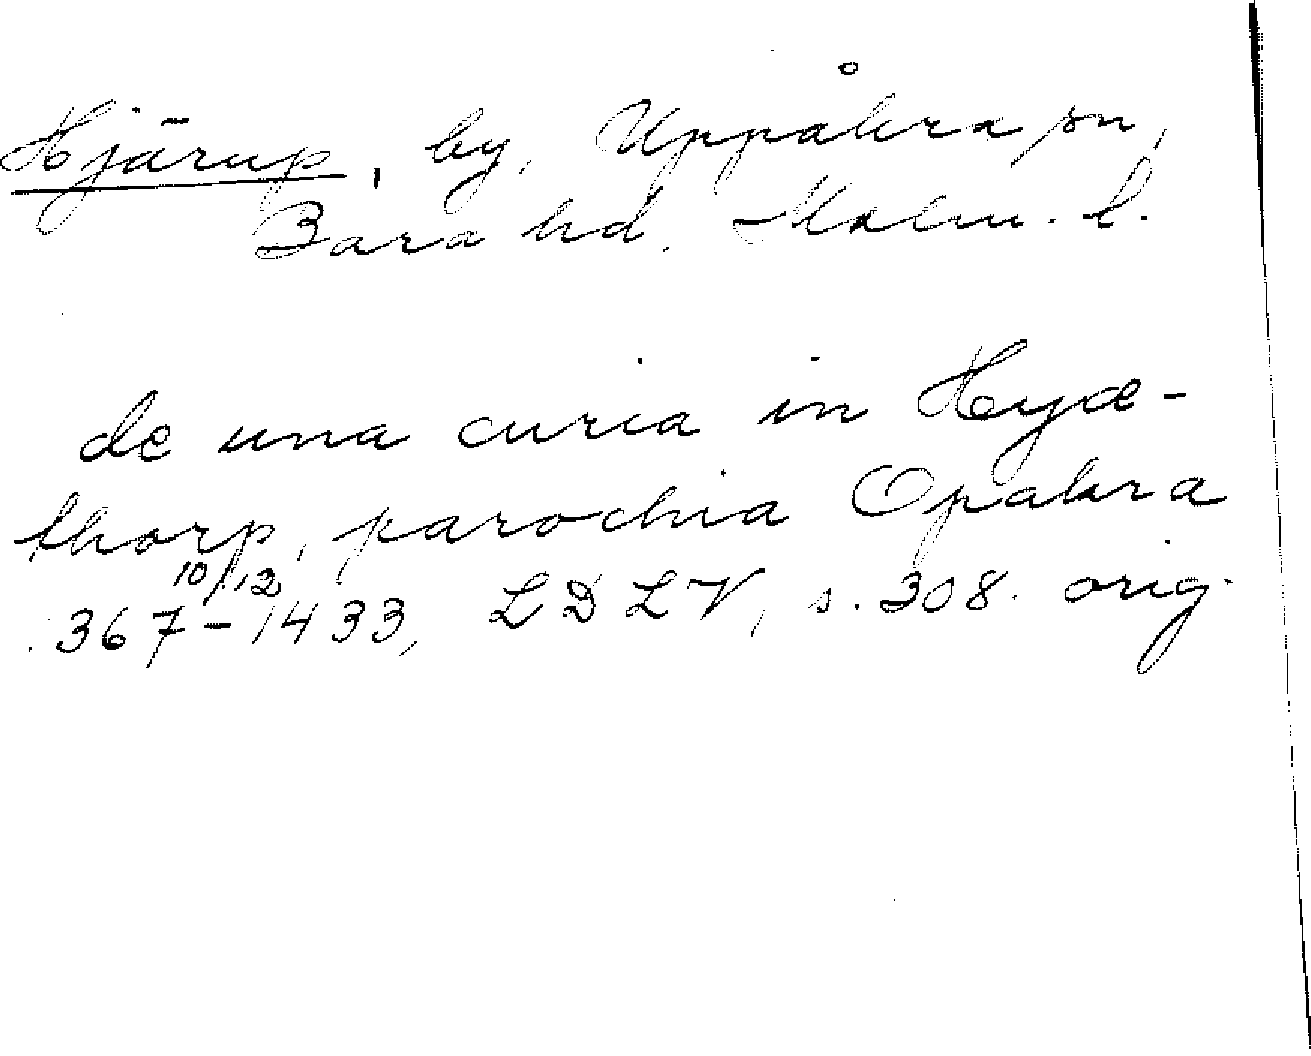 Hjärup, by, Uppåkra sn,
Bara hd. Malm. l.
de una curia in Hyæ-
thorp, parochia Opakra
10/12
.367-1433, LDLV, s. 308. orig.